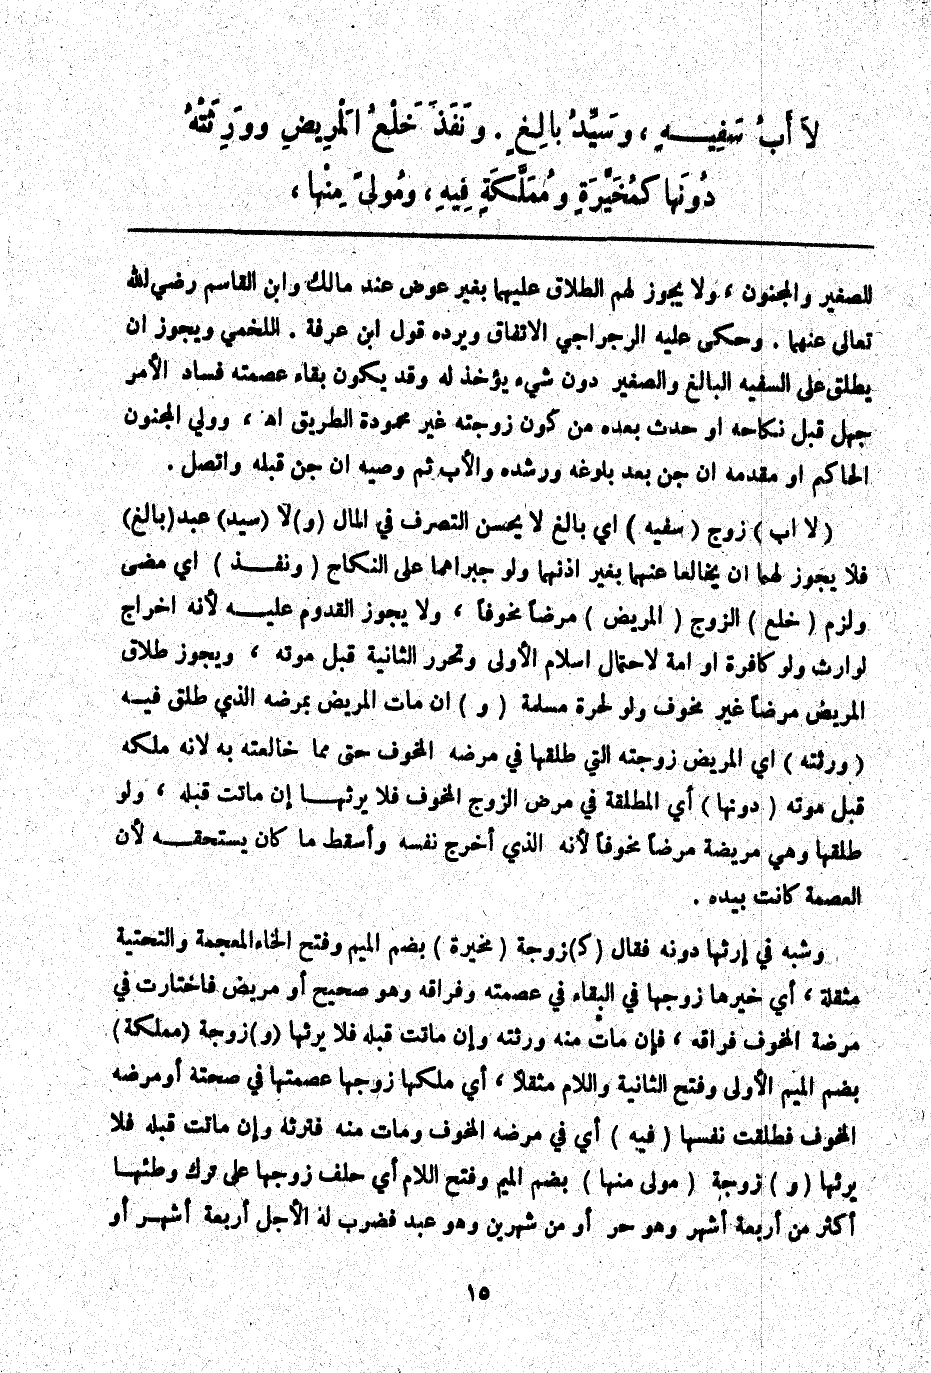 لاَ أَبُ سَفِيـــهٍ ، وسَيِّدُ بالِغٍ . ونَفَذَ خَلْعُ المَرِيضِ وورِثَتْهُ
دُونَها كمُخَيَّرَةٍ ومُمَلَّكَةٍ فِيهِ ، ومُولىً مِنْها ،
للصغير والمجنون ، ولا يجوز لهم الطلاق عليهما بغير عوض عند مالك وابن القاسم رضي لله
تعالى عنهما . وحكى عليه الرجراجي الاتفاق ويرده قول ابن عرفة . اللخمي ويجوز ان
يطلق على السفيه البالغ والصغير دون شيء يؤخذ له وقد يكون بقاء عصمته فساد الأمر
جهل قبل نكاحه او حدث بعده من كون زوجته غير محمودة الطريق اه ، وولي المجنون
الحاكم او مقدمه ان جن بعد بلوغه ورشده والأب ثم وصيه ان جن قبله واتصل .
( لا اب ) زوج ( سفيه ) اي بالغ لا يحسن التصرف في المال ( و)لا (سيد) عبد(بالغ)
فلا يجوز لهما ان يخالعا عنهما بغير اذنهما ولو جبراهما على النكاح ( ونفـــذ ) اي مضى
ولزم ( خلع ) الزوج ( المريض ) مرضاً مخوفاً ، ولا يجوز القدوم عليـــه لأنه اخراج
لوارث ولو كافرة او امة لاحتمال اسلام الأولى وتحرر الثانية قبل موته ، ويجوز طلاق
المريض مرضاً غير مخوف ولو لحرة مسلمة ( و ) ان مات المريض بمرضه الذي طلق فيـه
( ورثته ) اي المريض زوجته التي طلقها في مرضه المخوف حتى مما خالعته به لانه ملكه
قبل موته ( دونها ) أي المطلقة في مرض الزوج المخوف فلا يرثهـــا إن ماتت قبله ، ولو
طلقها وهي مريضة مرضاً مخوفاً لأنه الذي أخرج نفسه وأسقط ما كان يستحقـــه لأن
العصمة كانت بيده .
وشبه في إرثها دونه فقال (كـ)زوجة ( مخيرة ) بضم الميم وفتح الخاء المعجمة والتحتية
مثقلة ، أي خيرها زوجها في البقاء في عصمته وفراقه وهو صحيح أو مريض فاختارت في
مرضة المخوف فراقه ، فإن مات منه ورثته وإن ماتت قبله فلا يرثها (و)زوجة (مملكة)
بضم الميم الأولى وفتح الثانية واللام مثقلاً ، أي ملكها زوجها عصمتها في صحتة أومرضه
المخوف فطلقت نفسها ( فيه ) أي في مرضه المخوف ومات منه فترثه وإن ماتت قبله فلا
يرثها ( و ) زوجة ( مولى منها ) بضم الميم وفتح اللام أي حلف زوجها على ترك وطئهـا
أكثر من أربعة أشهر وهو حر أو من شهرين وهو عبد فضرب له الأجل أربعة أشهـر أو
١٥